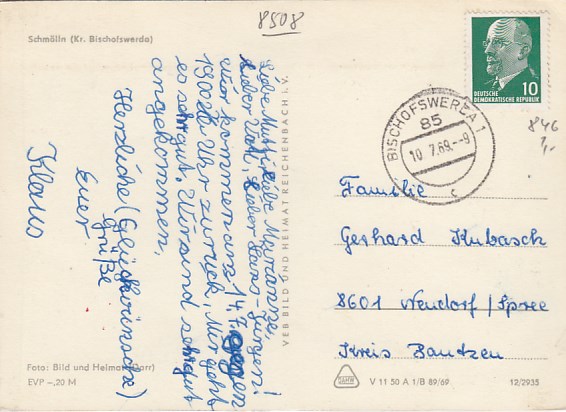 8508
Schmölln (Kr. Bischofswerda)
Liebe Mutti, liebe Marianne,
lieber Vati, lieber Hans-Jürgen!
wir kommen am 14.7. gegen
1900 Uhr zurück. Mir geht
es sehr gut. Wir sind sehr gut
angekommen.
Herzliche (Glückwünsche)
Grüße
Euer
Klaus
VEB BILD UND HEIMAT REICHENBACH i. V.
DEUTSCHE 10
DEMOKRATISCHE REPUBLIK
BISCHOFSWERDA 1
85
10.7.69.-9
c
846
1,-
Familie
Gerhard Kubasch
8601 Wendorf/Spree
Kreis Bautzen
Foto: Bild und Heimat
EVP -,20 M
V 11 50 A 1/B 89/69
12/2935